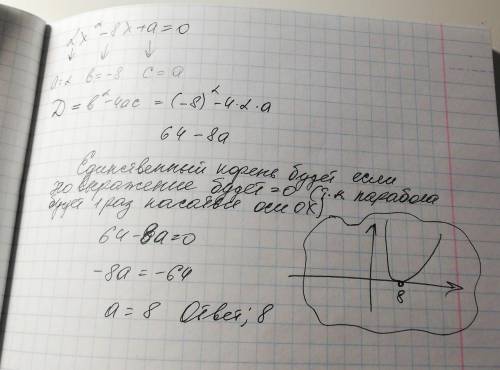 2x²-8x+a=0
a=2 b=-8 c=a
D=b²-4ac=(-8)²-4·2·a
64-8a
Единственный корень будет если
выражение будет=0 (т.к парабола
1 раз касаться оси OX)
64-8a=0
-8a=-64
a=8 Ответ; 8
8